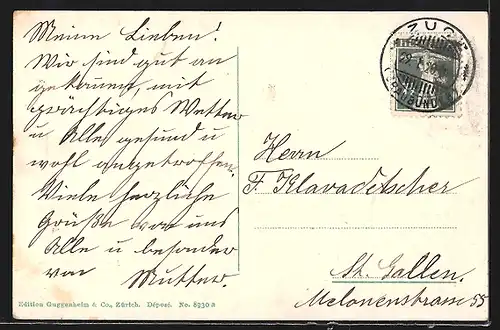 Meine Lieben!
Wir sind gut an
gekommen mit
prächtiges Wetter
u Alle gesund u
wohl angetroffen.
Viele herzliche
Grüße von uns
Alle u besonder
von Mutter.
ZUG
Herrn
F. Klavadetscher
St. Gallen.
Melonenstrasse 55
Edition Guggenheim & Co., Zürich. Déposé. No. 8230